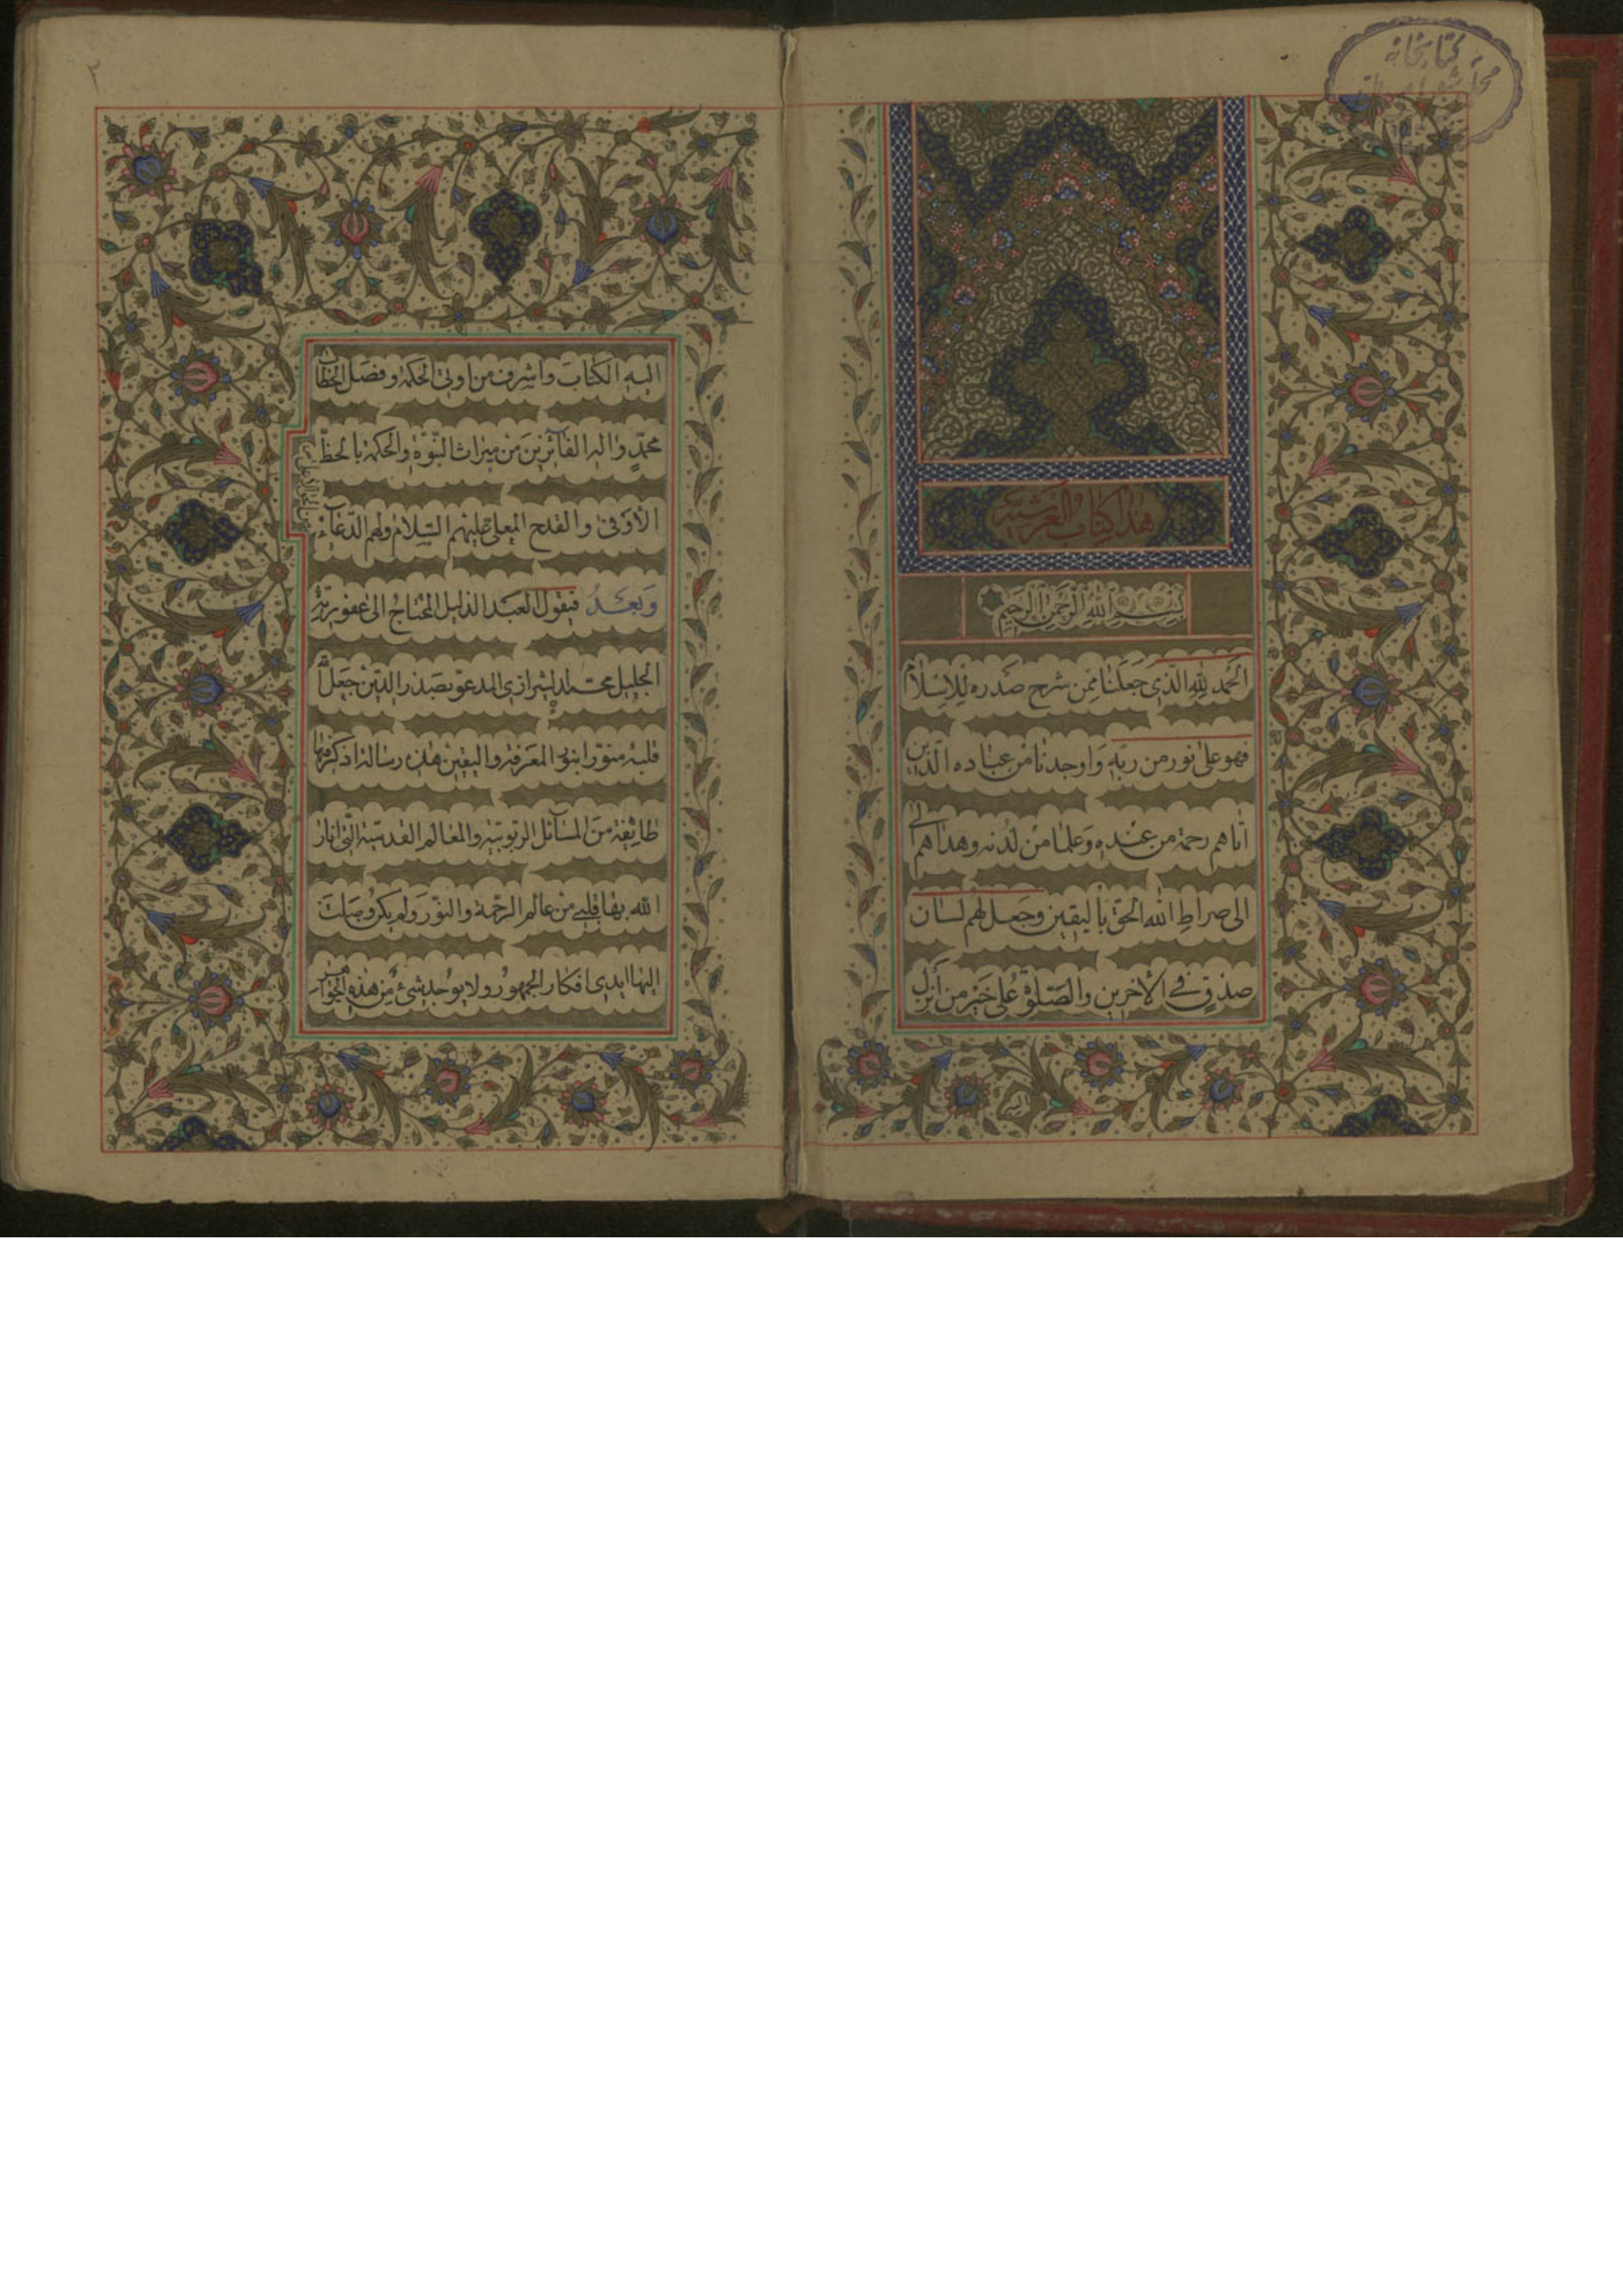 كتابخانه
هذا كتاب العرشية
بسم الله الرحمن الرحيم
الحمد لله الذي جعلنا ممن شرح صدره للاسلام
فهو على نور من ربه واوجدنا من عباده الذين
اتاهم رحمة من عنده وعلما من لدنه وهداهم
الى صراط الله الحق باليقين وجعل لهم لسان
صدق في الآخرين والصلوة على خير من أنزل
٢
اليه الكتاب واشرف من اوتي الحكمة وفصل الخطاب
محمد واله الفآئزين من ميراث النبوة والحكمة بالحظ
الأوفى والقدح المعلى عليهم السلام ولهم الدعآء
وبعد فيقول العبد الذليل المحتاج الى عفو ربه
الجليل محمد الشيرازي المدعو بصدر الدين جعل الله
قلبه منورا بنور المعرفة واليقين هذه رسالة اذكر فيها
طائفة من المسآئل الربوبية والمعالم القدسية التي انار
الله بها قلبي من عالم الرحمة والنور ولم يكد وصلت
اليها ايدي افكار الجمهور ولا يوجد شئ من هذه الجواهر